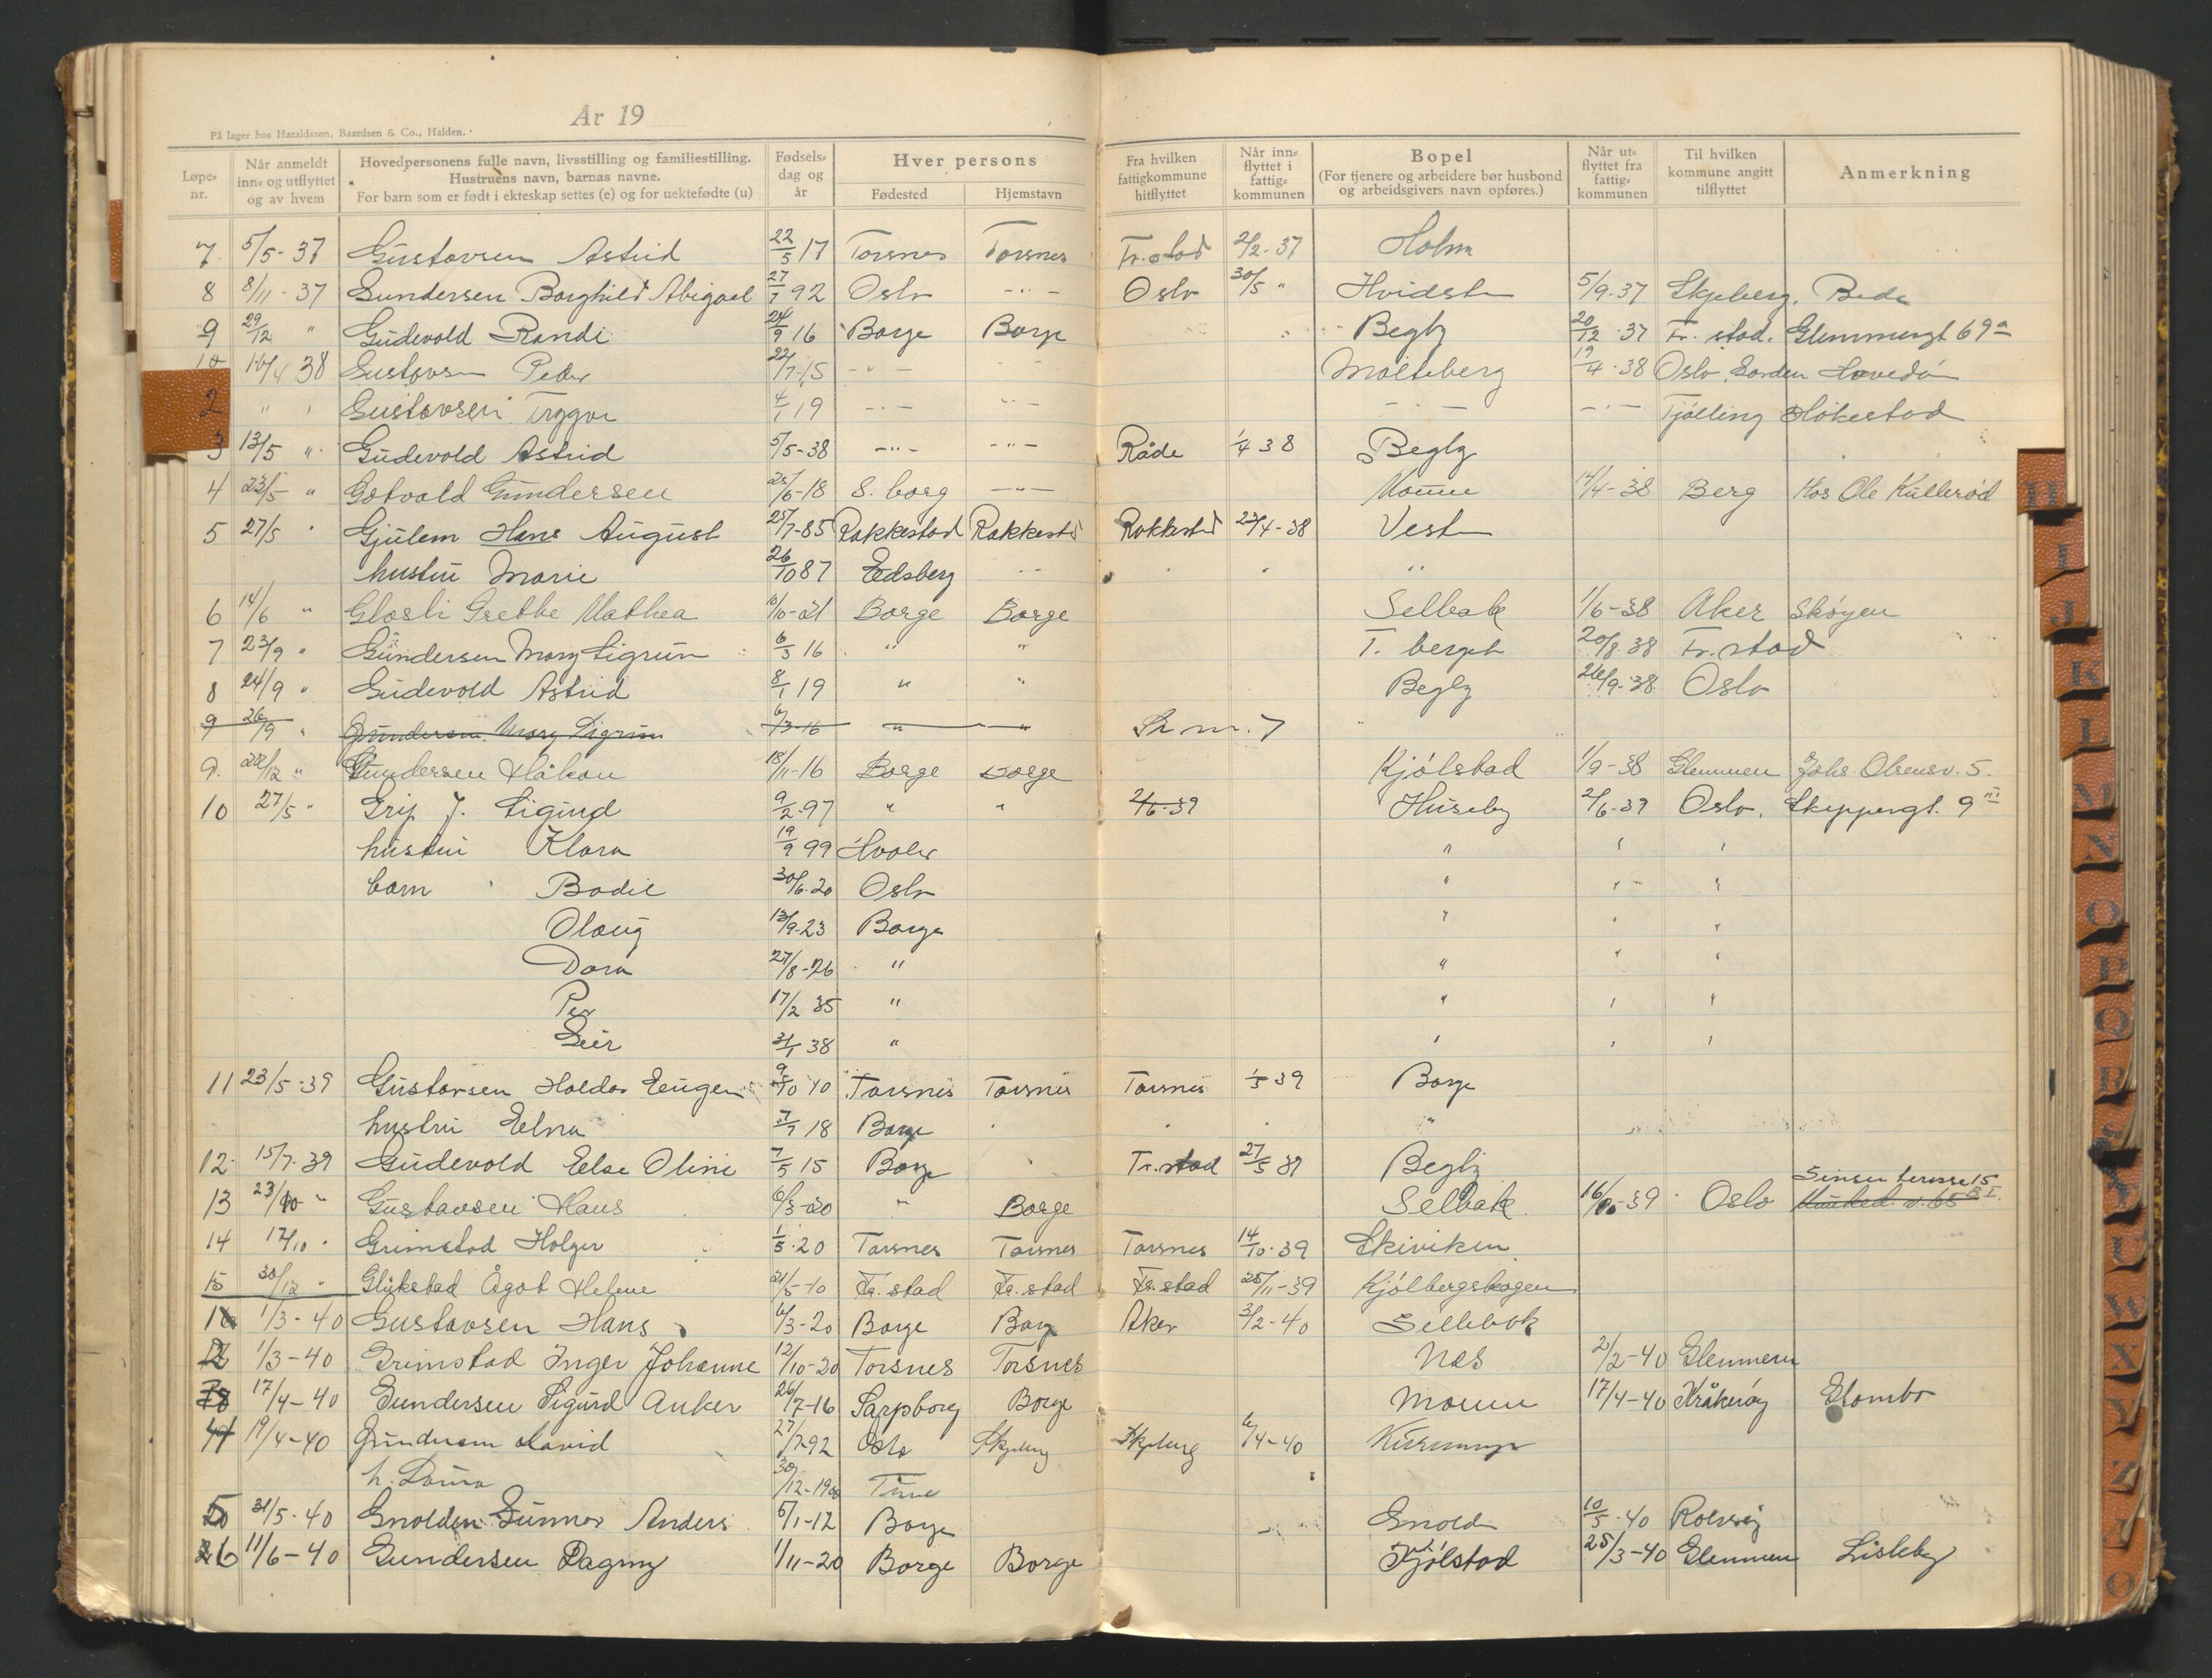 Ar 19
På lager hos Haraldssøn, Baardsen & Co., Halden.
Løpenr. Når anmeldt inn- og utflyttet og av hvem Hovedpersonens fulle navn, livsstilling og familiestilling. Hustruens navn, barnas navne. For barn som er født i ekteskap settes (e) og for uektefødte (u) Fødselsdag og år Hver persons Fødested Hjemstavn Fra hvilken fattigkommune hitflyttet Når innflyttet i fattigkommunen Bopel (For tjenere og arbeidere bør husbond og arbeidsgivers navn opføres.) Når utflyttet fra fattigkommunen Til hvilken kommune angitt tilflyttet Anmerkning
7 5/5-37 Gustavsen Astrid 22/5 17 Torsnes Torsnes Fr.stad 2/2-37 Holm
8 8/11-37 Gundersen Borghild Abigael 27/7 92 Oslo -"- Oslo 30/5 " Hvidsten 5/9-37 Skjeberg.
9 29/12 " Gudevold Randi 24/9 16 Borge Borge Begby 20/12-37 Fr.stad. Glemmengt 69a
10 38 Gustavsen Peder 22/7-15 -"- -"- Molteberg 19/4-38 Oslo, Garden Hovedø
2 " " Gustavsen Trygve 4/1 19 -"- -"- -"- -"- Tjølling
3 13/5 " Gudevold Astrid 5/5-38 -"- -"- Råde 1/4 38 Begby
4 23/5 " Gotvald Gundersen /6-18 S.borg -"- Moum 14/4-38 Berg Hos Ole Kullerød
5 27/5 " Gjulem Hans August 25/7-85 Rakkestad Rakkestad Rakkestad 23/4-38 Vesten
hustru Marie 26/10 87 Eidsberg -"- "
6 14/6 " Glosli Grethe Mathea /10-21 Borge Borge Selbak 1/6-38 Aker Skøyen
7 23/9 " Gundersen Mary Sigrun 6/3 16 " " T. berget 20/8 38 Fr.stad
8 24/9 " Gudevold Astrid 8/1 19 " " Begby 26/9-38 Oslo
9 26/9 " Gundersen Mary Sigrun 6/3-16 " " Se nr. 7
9. 28/12 " Gundersen Håkon 18/11-16 Borge Borge Kjølstad 1/9-38 Glemmen Johs. Olsensv. 5.
10 27/5 " Grip J. Sigurd 9/2-97 " " 2/6-39 Huseby 2/6-39 Oslo. Skippergt. 9 III
hustru Klara 19/9 99 Hvaler " " "
barn " Bodil 30/6-20 Oslo " " "
Olaug 13/9-23 Borge " " "
Dora 27/8-26 " " " "
Per 17/2 35 " " " "
Geir 31/1 38 " " " "
11 23/5-39 Gustavsen Haldor Eugen 9/10 10 Torsnes Torsnes Torsnes 1/5 39 Borge
hustru Elna 7/7 18 Borge "
12 15/7-39 Gudevold Else Oline 7/5 15 Borge Fr.stad 27/5 39 Begby
13 23/10 " Gustavsen Hans 6/3-20 " Borge Selbak 16/10-39 Oslo Sinsen terasse 15 B I.
14 17/10 " Grimstad Holger 1/5-20 Torsnes Torsnes Torsnes 14/10-39 Skiviken
15 30/12 " Glükstad Ågot Helene 21/5-10 Fr.stad Fr.stad Fr.stad 25/11-39 Kjølbergskogen
1 1/3-40 Gustavsen Hans 6/3-20 Borge Borge Aker 3/2-40 Sellebak
2 1/3-40 Grimstad Inger Johanne 12/10-20 Torsnes Torsnes Nes 2/2-40 Glemmen
3 17/4-40 Gundersen Sigurd Anker 26/7-16 Sarpsborg Borge Moum 17/4-40 Kråkerøy Glombo
4 19/4-40 Gundersen David 27/7-92 Oslo Skjeberg Skjeberg 6/4-40
h. Laura 30/12-1900 Tune
5 31/5-40 Gnolden Gunnar Anders 5/1-12 Borge Gnolden 10/5-40 Rolvsøy
6 11/6-40 Gundersen Dagny 1/11-20 Borge Borge Kjølstad 25/3-40 Glemmen Lisleby
H I J K L N O P Q R U W X Z O